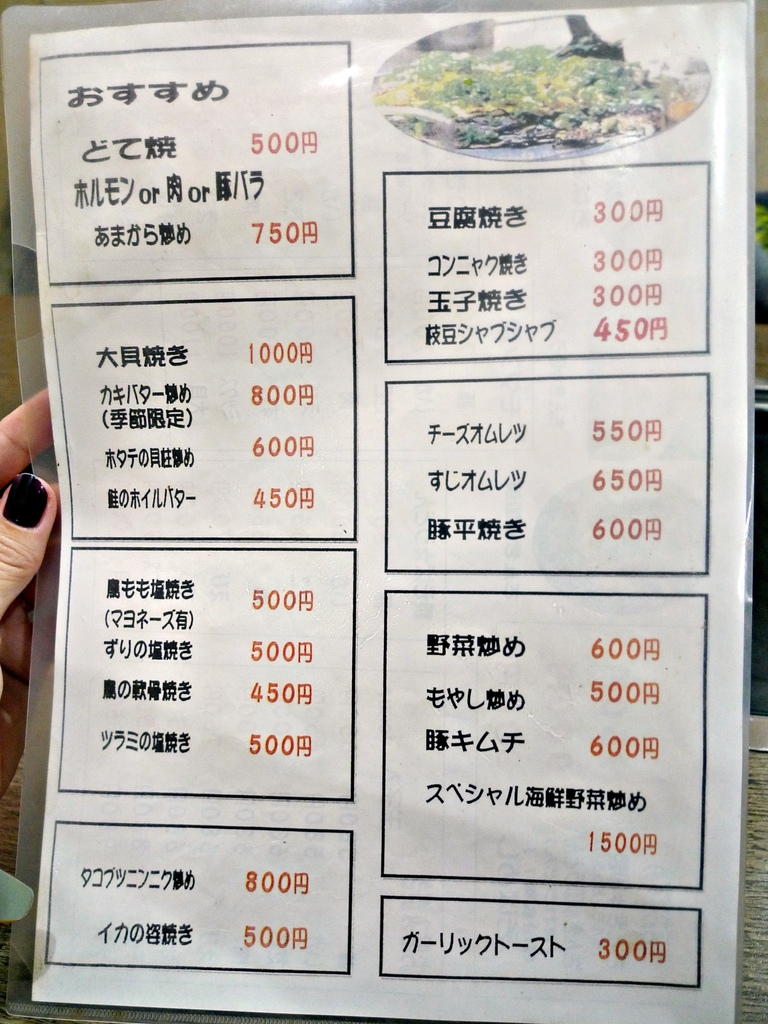 おすすめ
どて焼 500円
ホルモン or 肉 or 豚バラ
あまから炒め 750円
大貝焼き 1000円
カキバター炒め 800円
(季節限定)
ホタテの貝柱炒め 600円
鮭のホイルバター 450円
鳥もも塩焼き 500円
(マヨネーズ有)
ずりの塩焼き 500円
鳥の軟骨焼き 450円
ツラミの塩焼き 500円
タコブツニンニク炒め 800円
イカの姿焼き 500円
豆腐焼き 300円
コンニャク焼き 300円
玉子焼き 300円
枝豆シャブシャブ 450円
チーズオムレツ 550円
すじオムレツ 650円
豚平焼き 600円
野菜炒め 600円
もやし炒め 500円
豚キムチ 600円
スペシャル海鮮野菜炒め
1500円
ガーリックトースト 300円